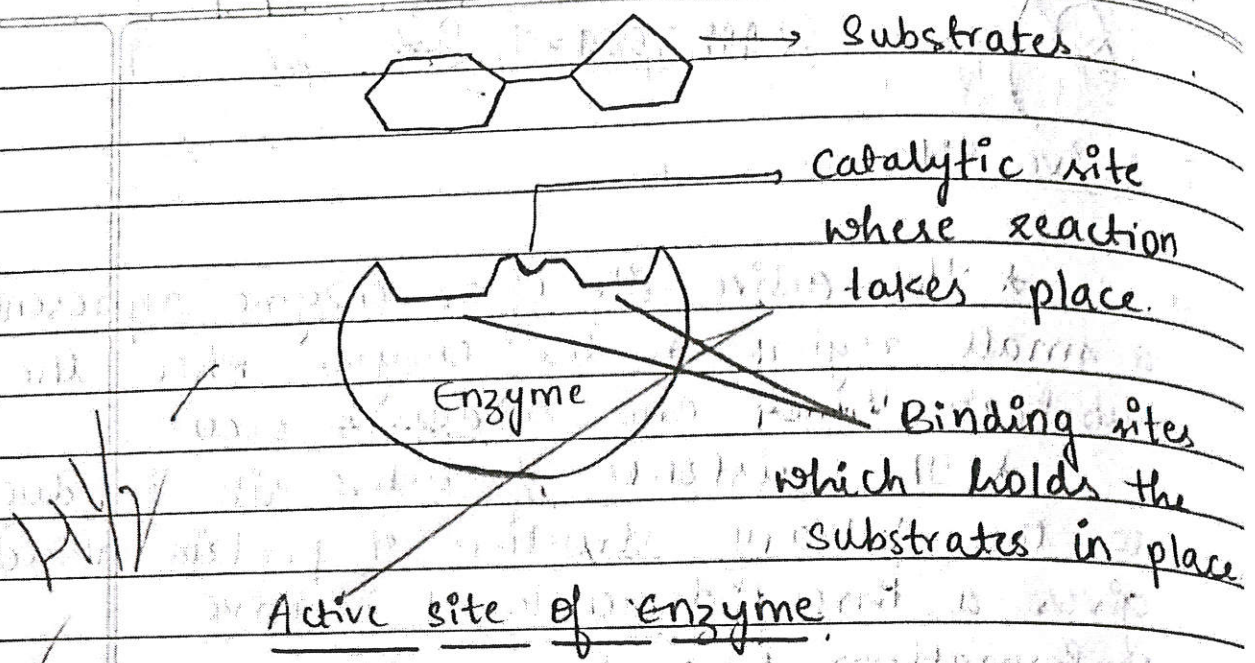 Substrates
Catalytic site
where reaction
takes place.
Enzyme
Binding sites
which holds the
substrates in place
Active site of Enzyme.